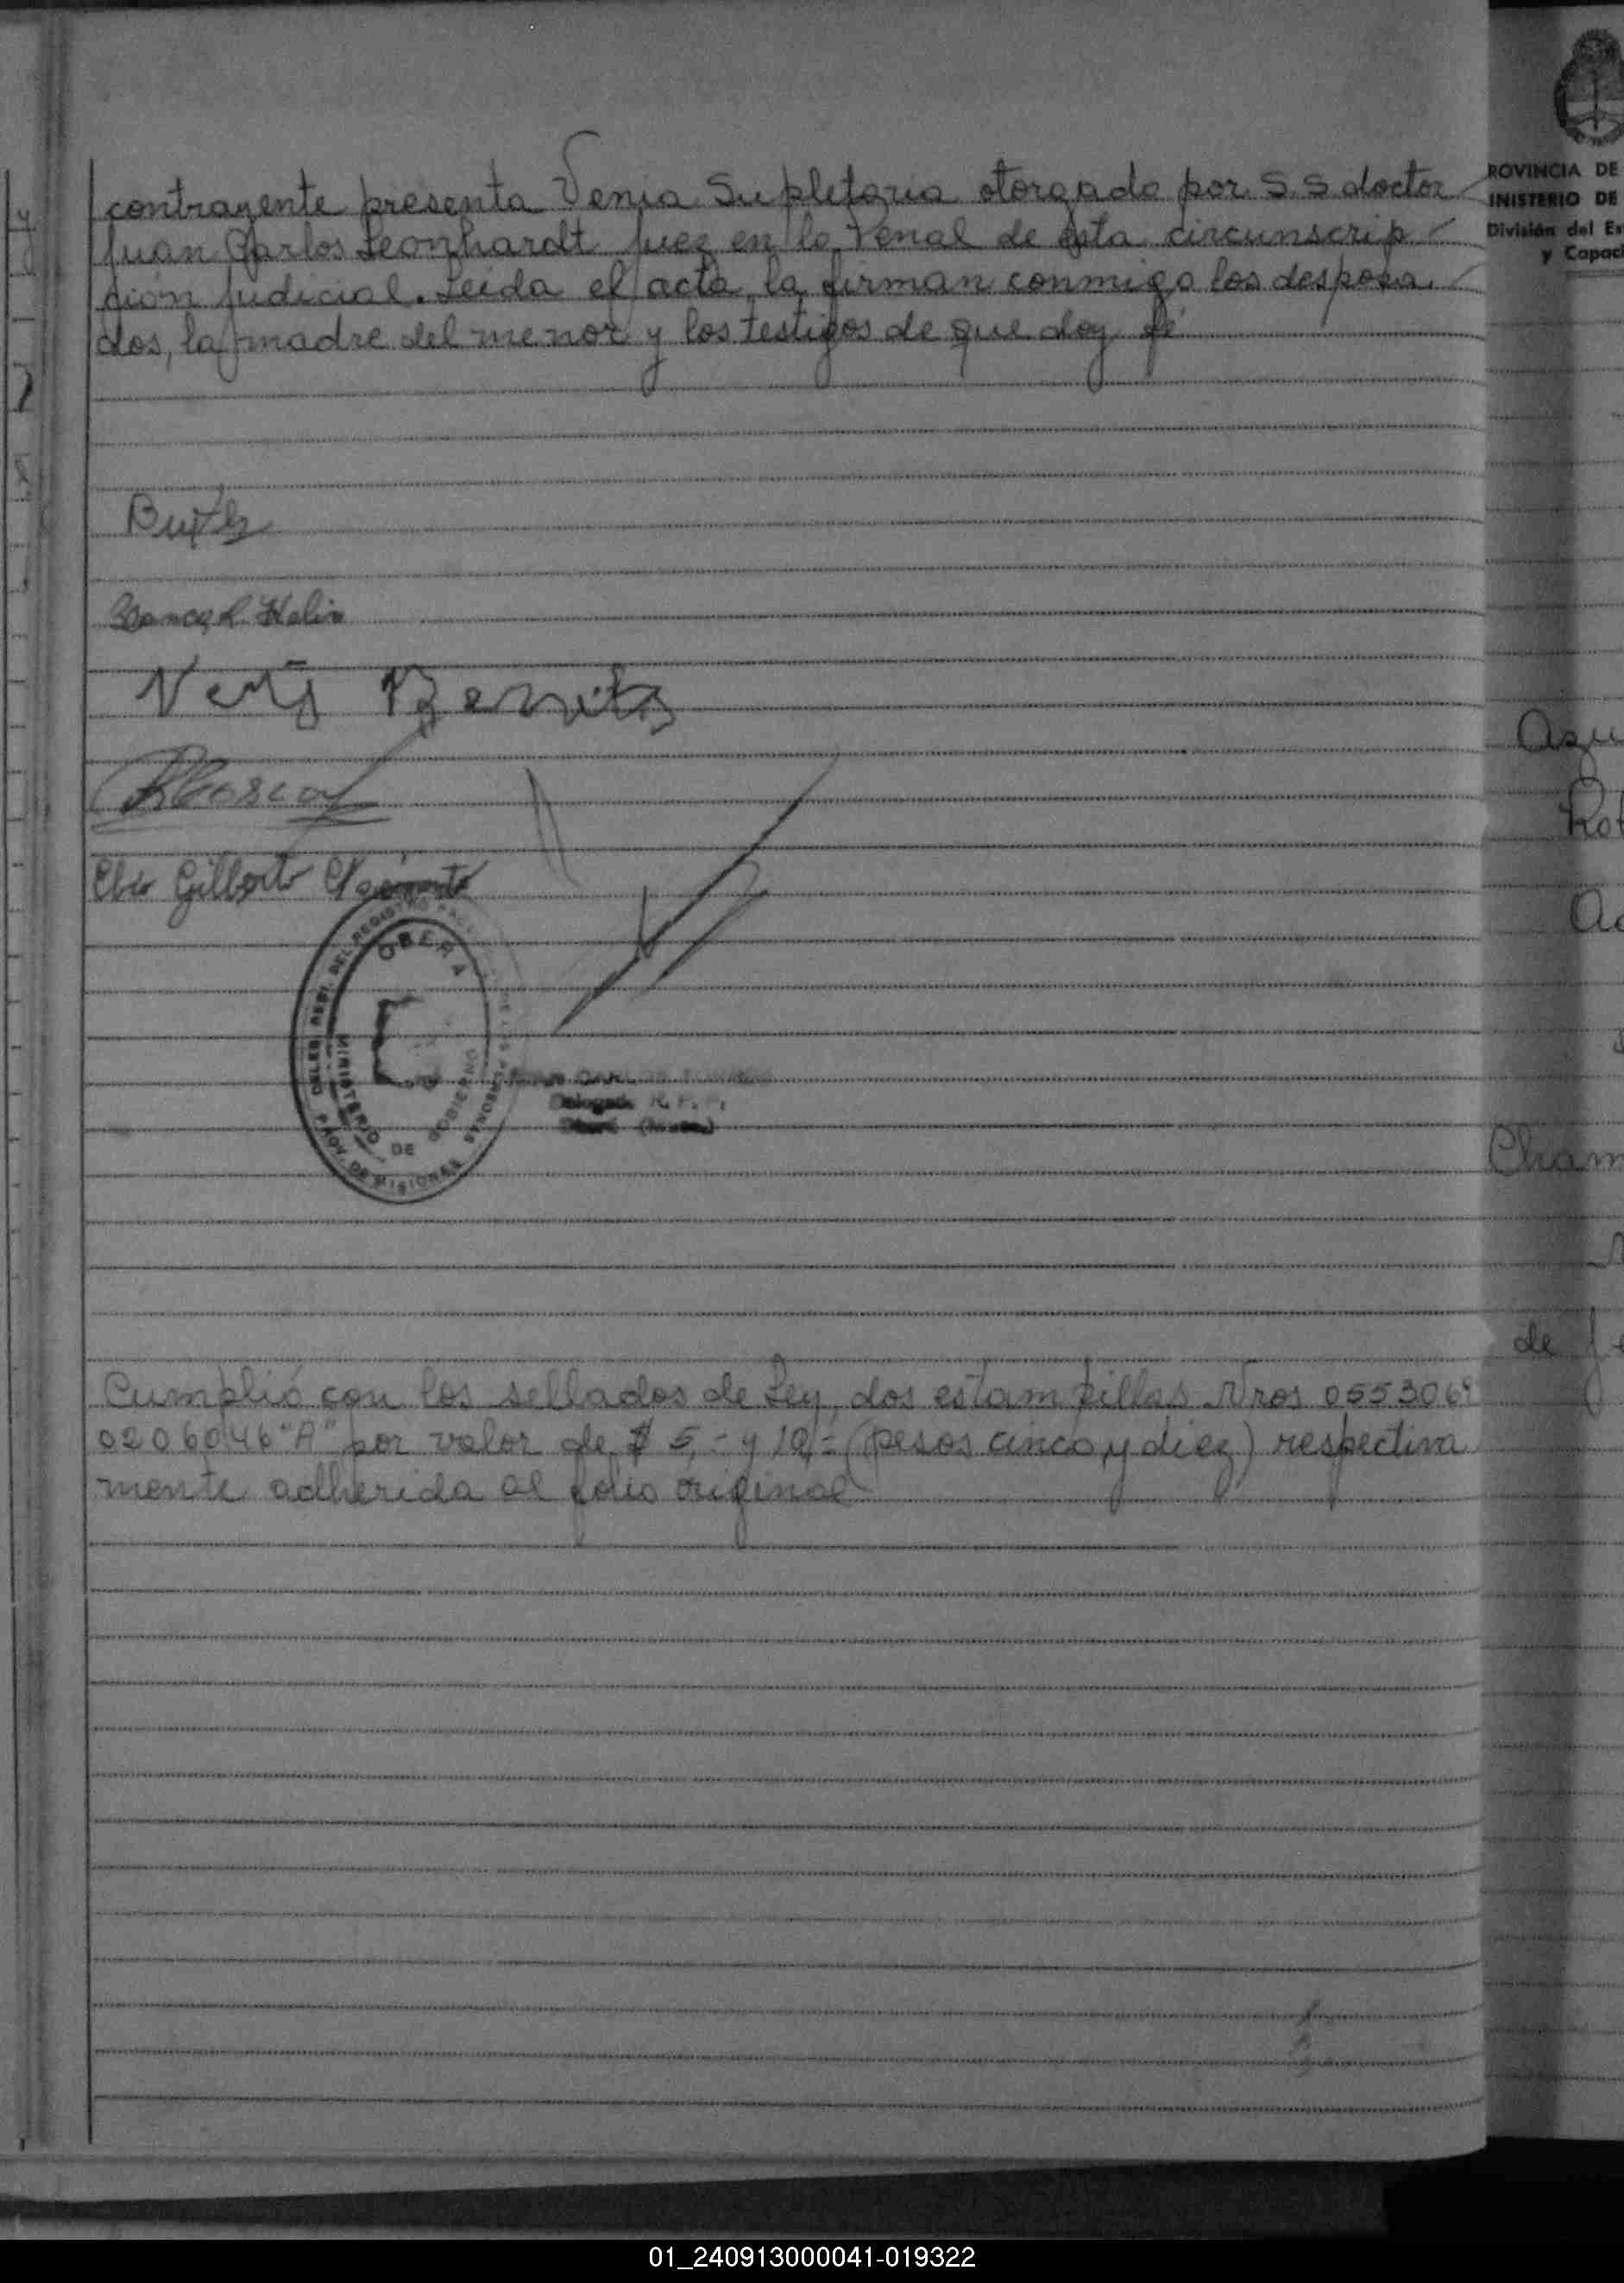 contrayente presenta Venia Supletoria otorgado por S.S. doctor
Juan Carlos Leonhardt Juez en lo Penal de esta circunscrip
ción judicial. Leida el acta, la firman conmigo los desposa
dos, la madre del menor y los testigos de que doy fé
Benitz
Elio Gilberto
DEL REGISTRO
OBERA
MINISTERIO DE GOBIERNO
PROV. DE MISIONES
PERSONAS
Delegado R. P. P.
Cumplió con los sellados de Ley, dos estampillas Nros 0553069
0206046 "A" por valor de $ 5,- y 10,- (pesos cinco y diez) respectiva
mente adherida al folio original
ROVINCIA DE
INISTERIO DE
División del Es
y Capaci
Cham
de
01_240913000041-019322